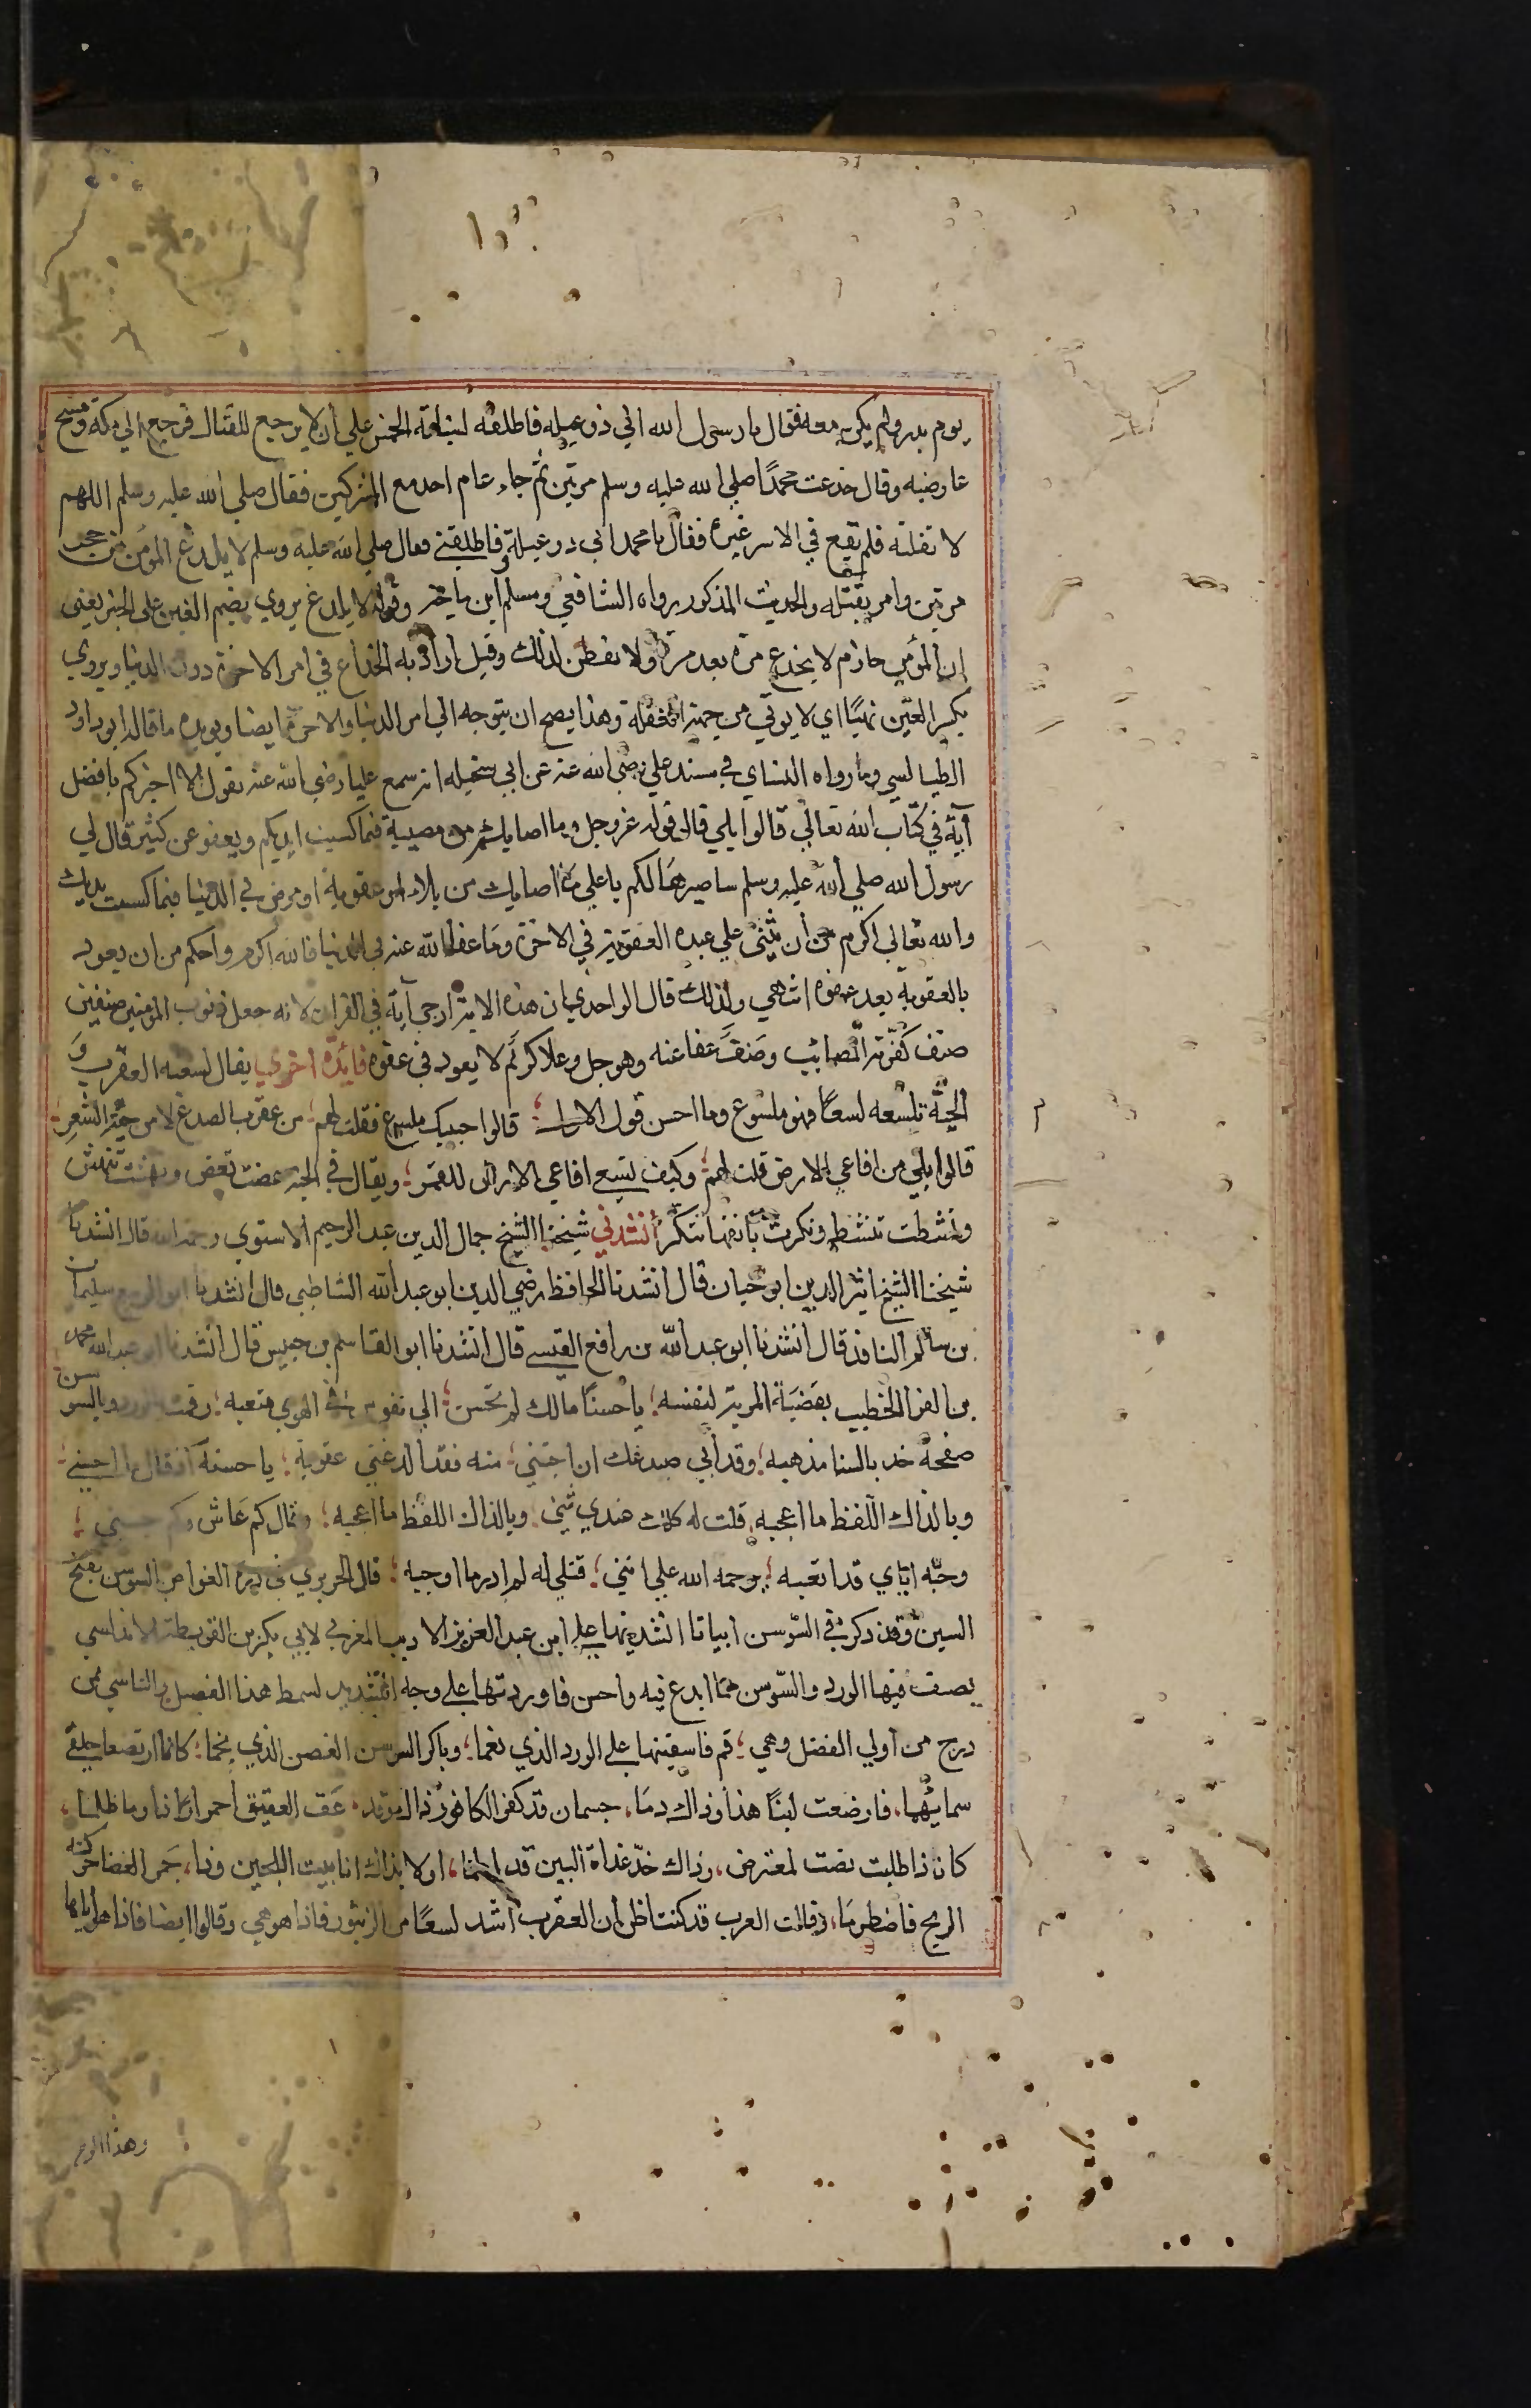 يوم بدر ولم يكن معه فقال يا رسول الله اني ذو عيله فاطلقه لبناته الخمس علي أن لا يرجع للقتال فرجع الي مكة ومسح
عارضيه وقال خدعت محمدًا صلي الله عليه وسلم مرتين ثم جاء عام احد مع المشركين فقال صلي الله عليه وسلم اللهم
لا تفلته فلم يقع في الاسر غيره فقال يا محمد اني ذو عيلة فاطلقني فقال صلي الله عليه وسلم لا يلدغ المؤمن من جحر
مرتين وامر بقتله والحديث المذكور رواه الشافعي ومسلم ابن ماجة وقوله لا يلدغ يروي بضم الغين على الخبر يعني
ان المؤمن حازم لا يخدع مرة بعد مرة ولا يفطن لذلك وقيل أراد به الخداع في امر الاخرة دون الدنيا ويروي
بكسر الغين نهيًا اي لا يوتي من جهة الغفلة وهذا يصح ان يتوجه الي امر الدنيا والاخرة ايضا ويويده ما قاله ابو داود
الطيالسي وما رواه النساي في مسند علي رضي الله عنه عن ابي سخيله انه سمع عليا رضي الله عنه يقول الا اخبركم بافضل
آية في كتاب الله تعالي قالوا بلي قال قوله عز وجل وما اصابكم من مصيبة فبما كسبت ايديكم ويعفو عن كثير قال لي
رسول الله صلي الله عليه وسلم سافسرها لكم يا علي ما اصابك من بلاء او عقوبة او مرض في الدنيا فبما كسبت يداك
والله تعالي اكرم من أن يثني علي عبده العقوبة في الاخرة وما عفا الله عنه في الدنيا فالله اكرم واحكم من ان يعود
بالعقوبة بعد عفوه انتهي ولذلك قال الواحدي ان هذه الاية ارجي آية في القران لانه جعل ذنوب المؤمنين صنفين
صنف كفرته المصائب وصنف عفا عنه وهو جل وعلا كريم لا يعود في عفوه فائدة اخري يقال لسعته العقرب و
الحيّة تلسعه لسعًا فهو ملسوع وما احسن قول الاول قالوا حبيبك ملسوع فقلت لهم من عقرب الصدغ لا من حيّة الشعر
قالوا بلي من افاعي الارض قلت لهم وكيف تسع افاعي الارض للقمر ويقال في الحية عضت تعض ونهشت تنهش
ونشطت تنشط ونكزت بأنفها تنكز أنشدني شيخنا الشيخ جمال الدين عبد الرحيم الاسنوي رحمه الله قال انشدنا
شيخنا الشيخ اثير الدين ابو حيان قال انشدنا الحافظ رضي الدين ابو عبد الله الشاطبي قال انشدنا ابو الربيع سليمان
بن سالم النافذ قال انشدنا ابو عبد الله بن رافع القيسي قال انشدنا ابو القاسم بن حبيس قال انشدنا ابو عبد الله محمد
بن الفرا الخطيب بقضبة المرية لنفسه يا حسنًا مالك لم تحسن الي نفوس في الهوي متعبه رقمت بورد وبالسوسن
صفحة خد بالسنا مذهبه وقد أبي صدغك ان اجتني منه فقد ألدغني عقربه يا حسنه اذ قال ما احسني
ويا لذاك اللفظ ما اعجبه قلت له كلك عندي سني ويا لذاك اللفظ ما اعجبه وقال كم عاش وكم حبني
وحبّه ايّاي قد اتعبه يرحمه الله علي انني قتلي له لم ادر ما اوجبه قال الحريري في درة الغواص السوسن بفتح
السين وقد ذكرت في السّوسن ابياتا انشدنيها علي ابن عبد العزيز الاديب المغربي لابي بكر بن القوطية الاندلسي
يصف فيها الورد والسّوسن مما ابدع فيه واحسن فاوردتها على وجه التشديد لسمط هذا الفصل والتاسي بمن
درج من أولي الفضل وهي قم فاسقينها على الورد الذي نعما وباكر السوسن الغصن الذي نجما كانما ارتضعا خلفي
سمائهما فارضعت لبنًا هذا وذاك دمًا جسمان قد كفر الكافور ذاك وقد عق العقيق احمرارًا ذا وما ظلما
كان ذا طلبت نصت لمعترض وذاك خدّ غداة البين قد لطما اولا فذاك انابيب اللجين وذا جمر الغضا حركته
الريح فاضطرمَا وقالت العرب قد كنت اظن ان العقرب اشد لسعًا من الزنبور فاذا هو هي وقالوا ايضا فاذا هو اياها
وهذا الوجه